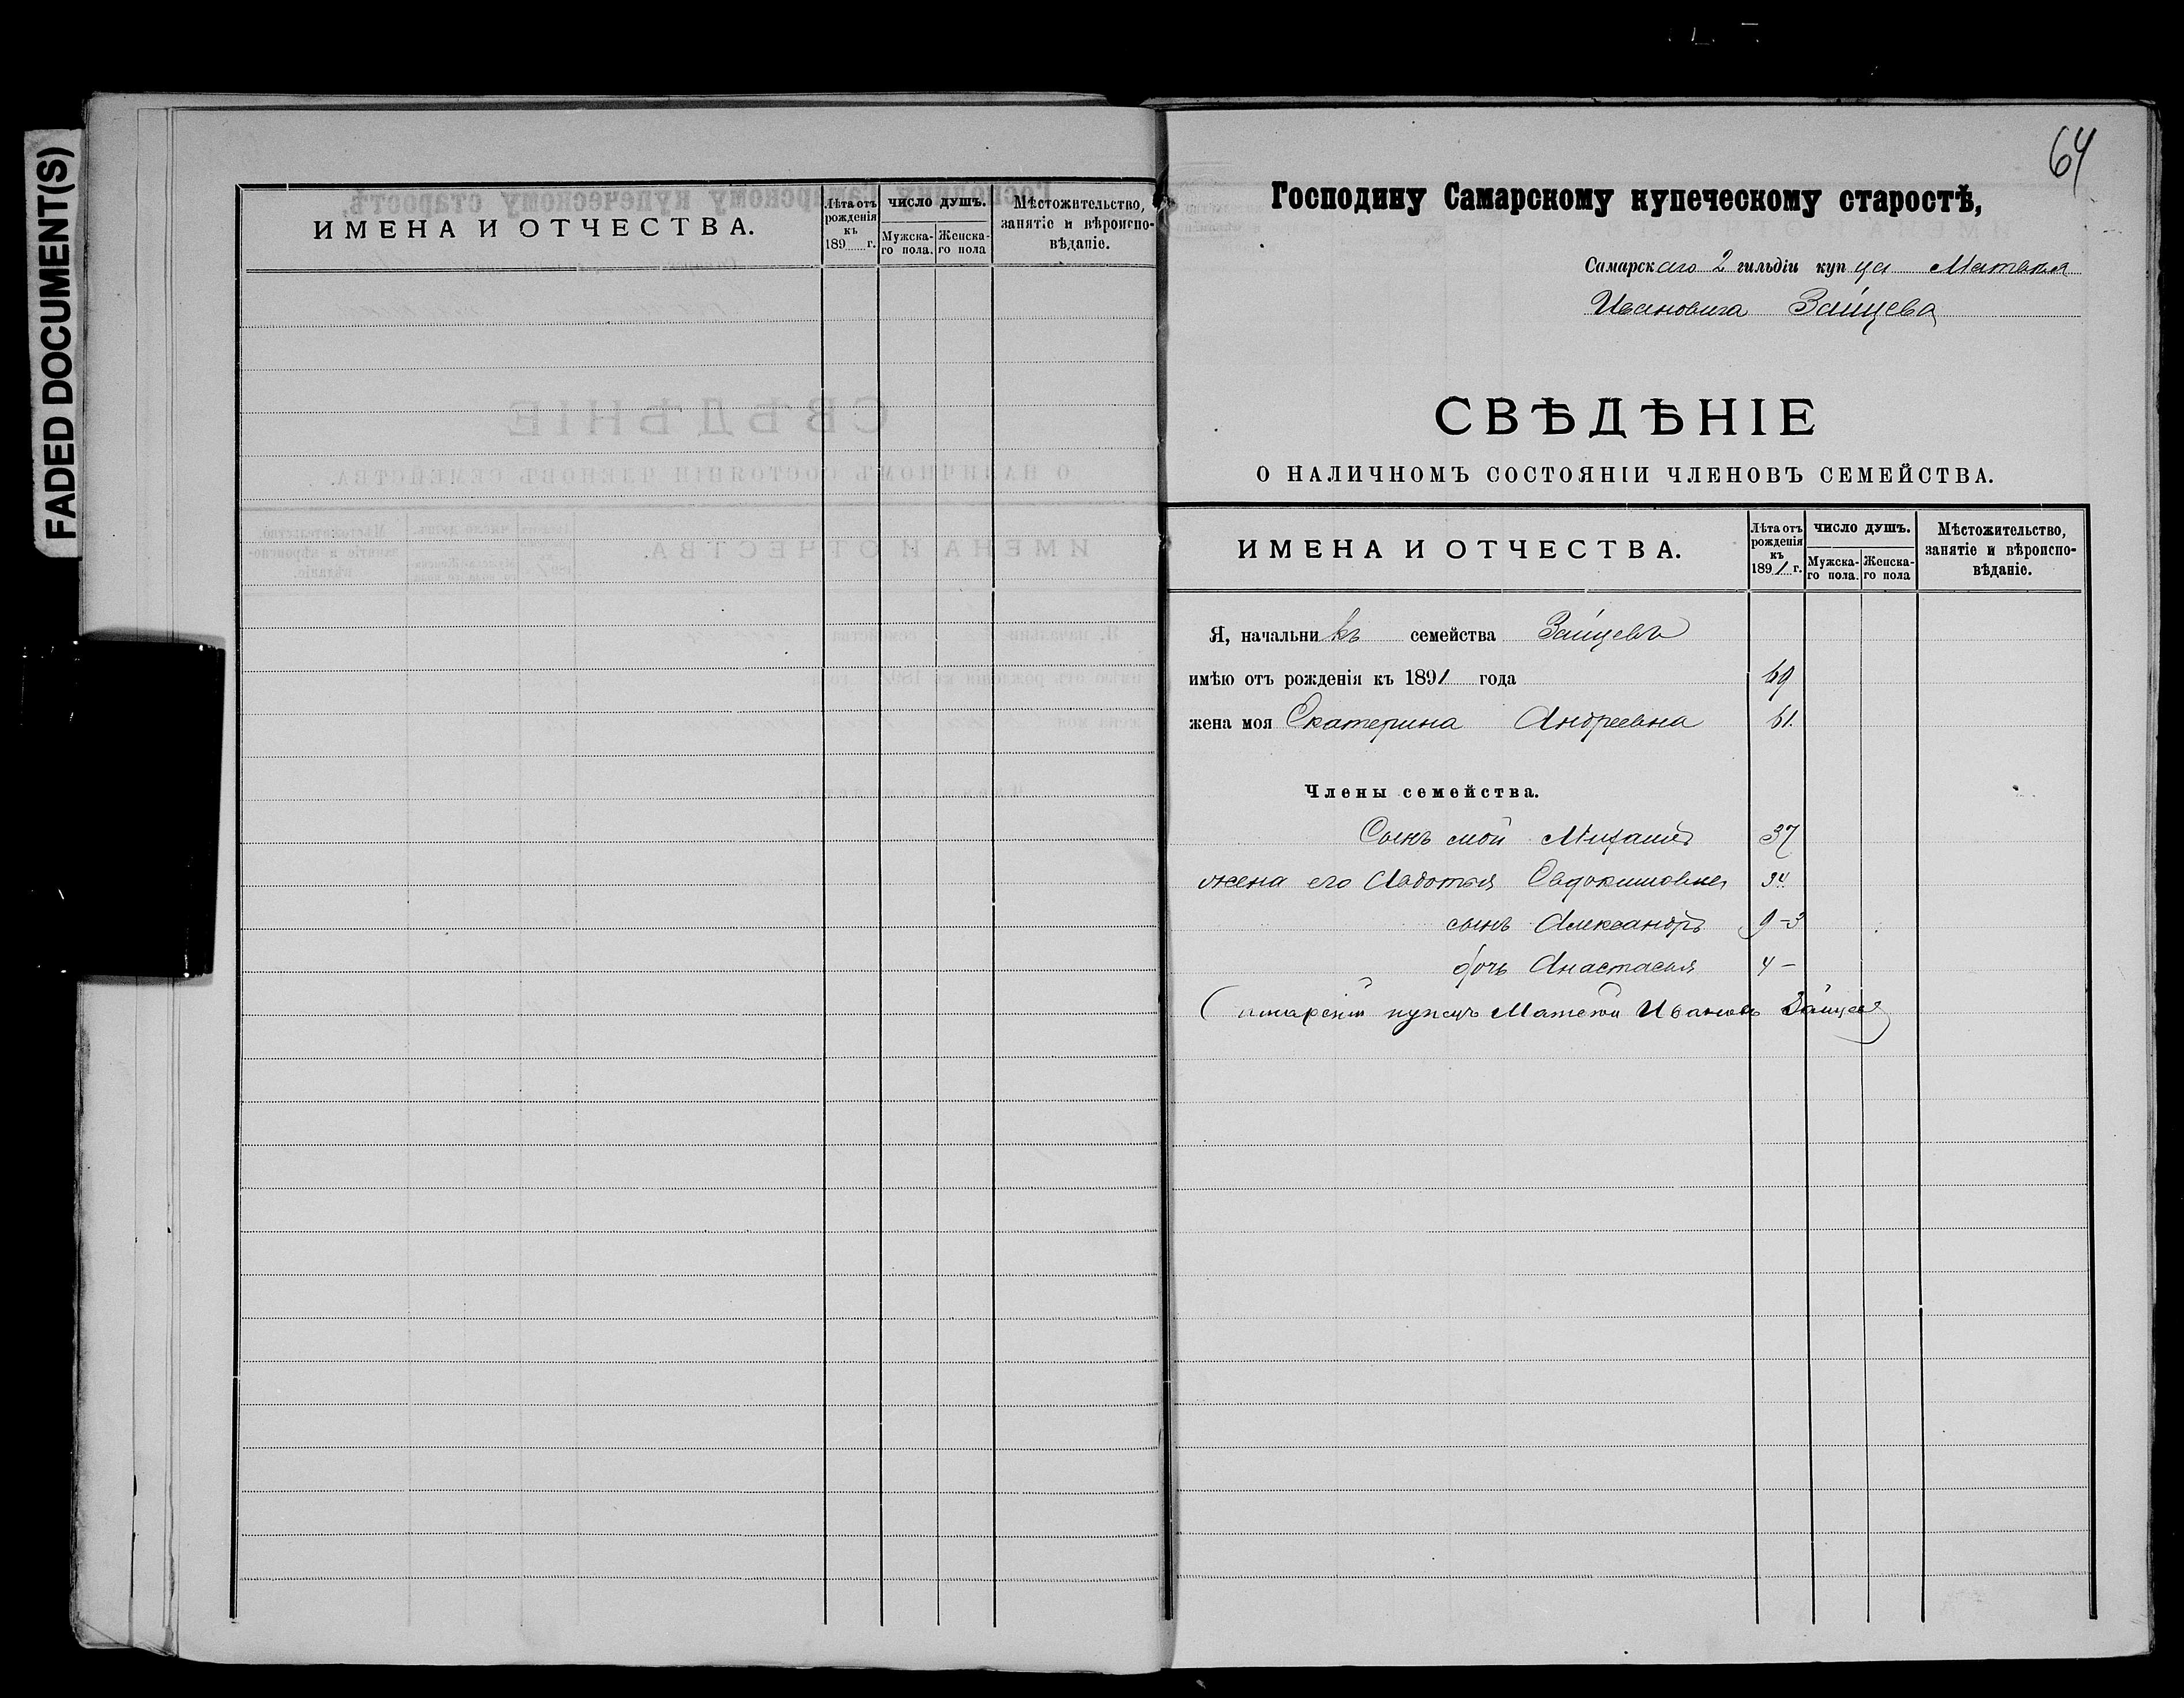 FADED DOCUMENT(S)
ИМЕНА И ОТЧЕСТВА.
Лѣта отъ рожденія къ 189 г.
ЧИСЛО ДУШЪ.
Мужска-го пола.
Женска-го пола
Мѣстожительство, занятіе и вѣроиспо-вѣданіе.
64
Господину Самарскому купеческому старостѣ,
Самарскаго 2 гильдіи купца Матвѣя
Ивановича Зайцева
СВѢДѢНІЕ
О НАЛИЧНОМЪ СОСТОЯНІИ ЧЛЕНОВЪ СЕМЕЙСТВА.
ИМЕНА И ОТЧЕСТВА.
Лѣта отъ рожденія къ 1891 г.
ЧИСЛО ДУШЪ.
Мужска-го пола.
Женска-го пола
Мѣстожительство, занятіе и вѣроиспо-вѣданіе.
Я, начальникъ семейства Зайцевъ
имѣю отъ рожденія къ 1891 года 69
жена моя Екатерина Андреевна 61.
Члены семейства.
Сынъ мой Михаилъ 37
жена его Авдотья Евдокимовна 34
сынъ Александръ 9-3
дочь Анастасья 4 –
Самарскій купецъ Матвей Ивановъ Зайцев